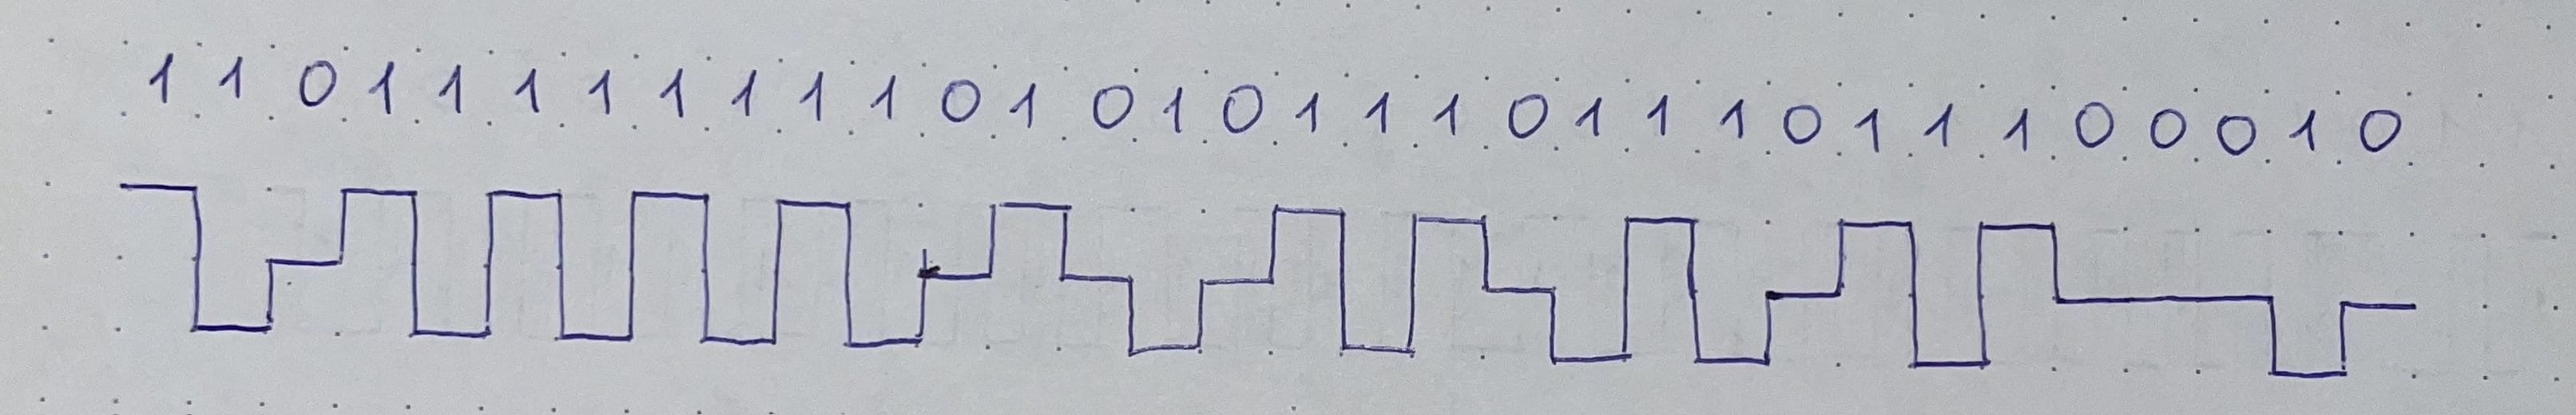 1 1 0 1 1 1 1 1 1 1 1 0 1 0 1 0 1 1 1 0 1 1 1 0 1 1 1 0 0 0 1 0